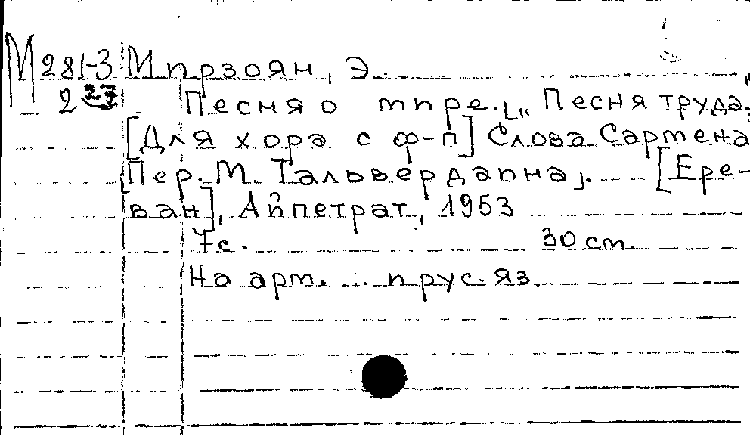 М 281-3 Мирзоян, Э.
2 27 Песня о мире. „Песня труда.“
[Для хора с ф-п] Слова Сармена
Пер. М. Тальвердяпна,. [Ере-
ван], Айпетрат, 1953
7с. 30 см.
На арм. и рус. яз.